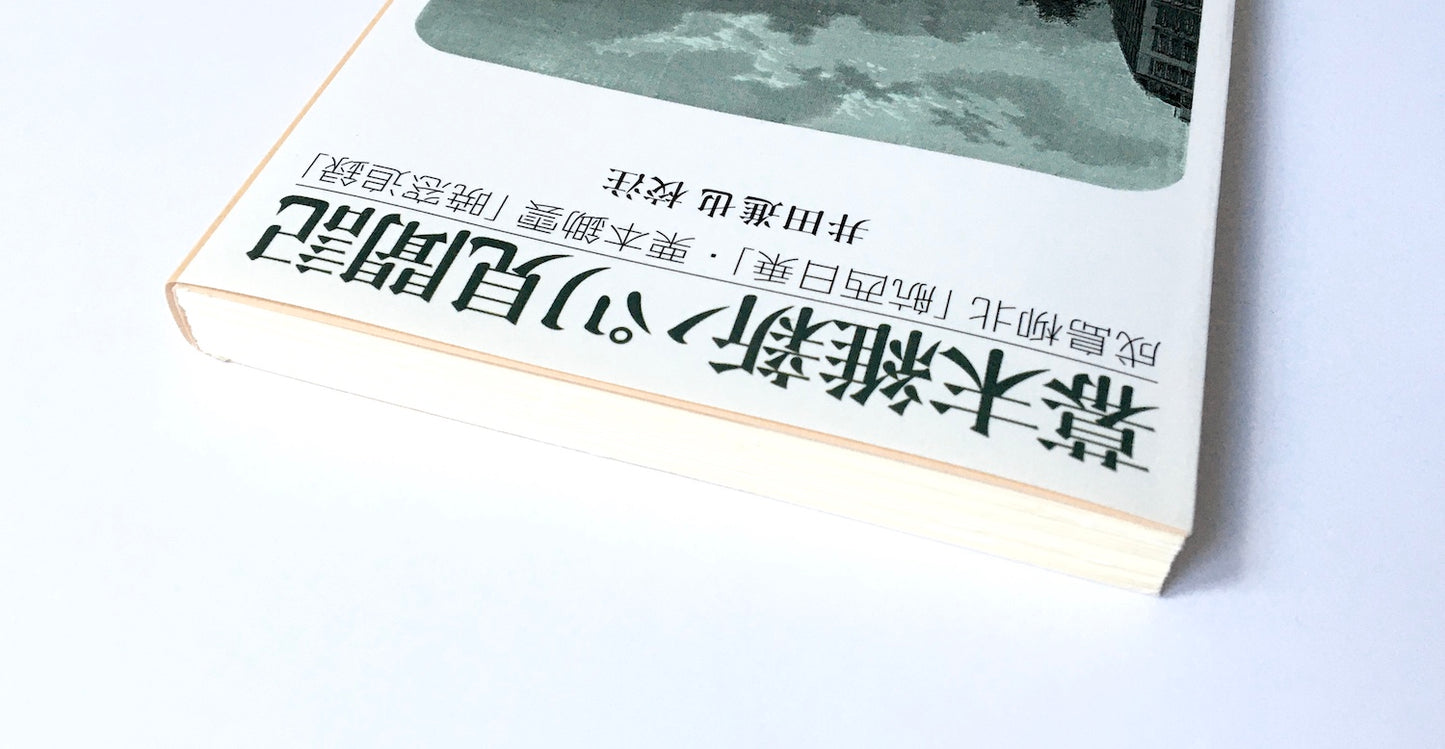 幕末維新パリ見聞記
成島柳北「航西日乗」・栗本鋤雲「暁窓追録」
井田進也 校注